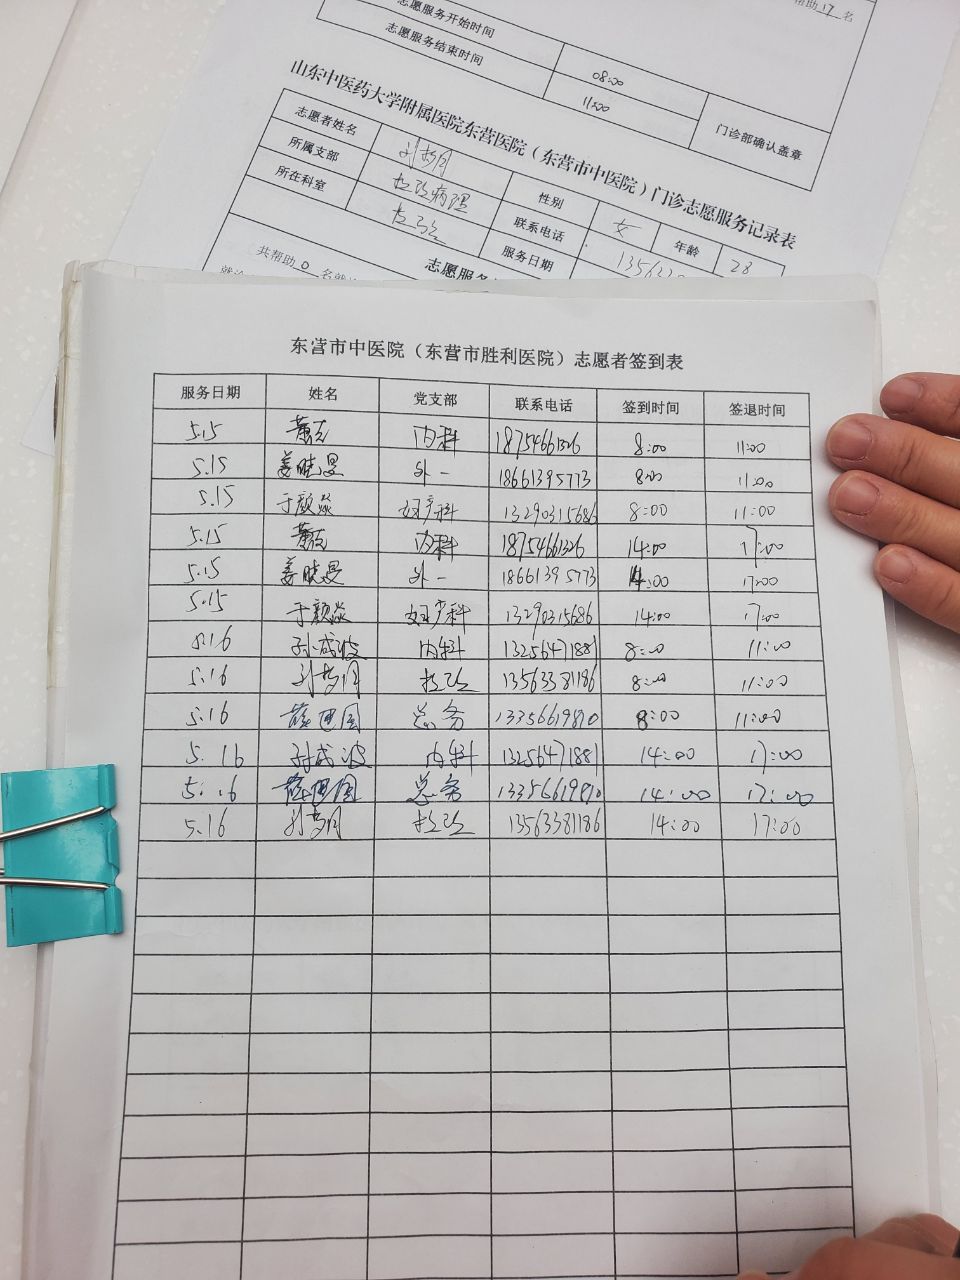 帮助17名
志愿服务开始时间 08:00
志愿服务结束时间 11:00 门诊部确认盖章
山东中医药大学附属医院东营医院（东营市中医院）门诊志愿服务记录表
志愿者姓名 刘梦月 性别 女 年龄 28
所属支部 检验病理 联系电话
所在科室 检验 服务日期
共帮助0名
东营市中医院（东营市胜利医院）志愿者签到表
服务日期 姓名 党支部 联系电话 签到时间 签退时间
5.15 内科 18754661326 8:00 11:00
5.15 姜晓曼 外一 18661395773 8:00 11:00
5.15 于颜焱 妇产科 13290315686 8:00 11:00
5.15 内科 18754661326 14:00 17:00
5.15 姜晓曼 外一 18661395773 14:00 17:00
5.15 于颜焱 妇产科 13290315686 14:00 17:00
5.16 孙成波 内科 13256471881 8:00 11:00
5.16 刘梦月 检验 13563381186 8:00 11:00
5.16 总务 13356619810 8:00 11:00
5.16 孙成波 内科 13256471881 14:00 17:00
5.16 总务 13356619810 14:00 17:00
5.16 刘梦月 检验 13563381186 14:00 17:00